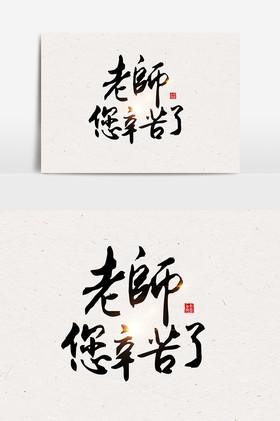 老師
您辛苦了
老師
您辛苦了